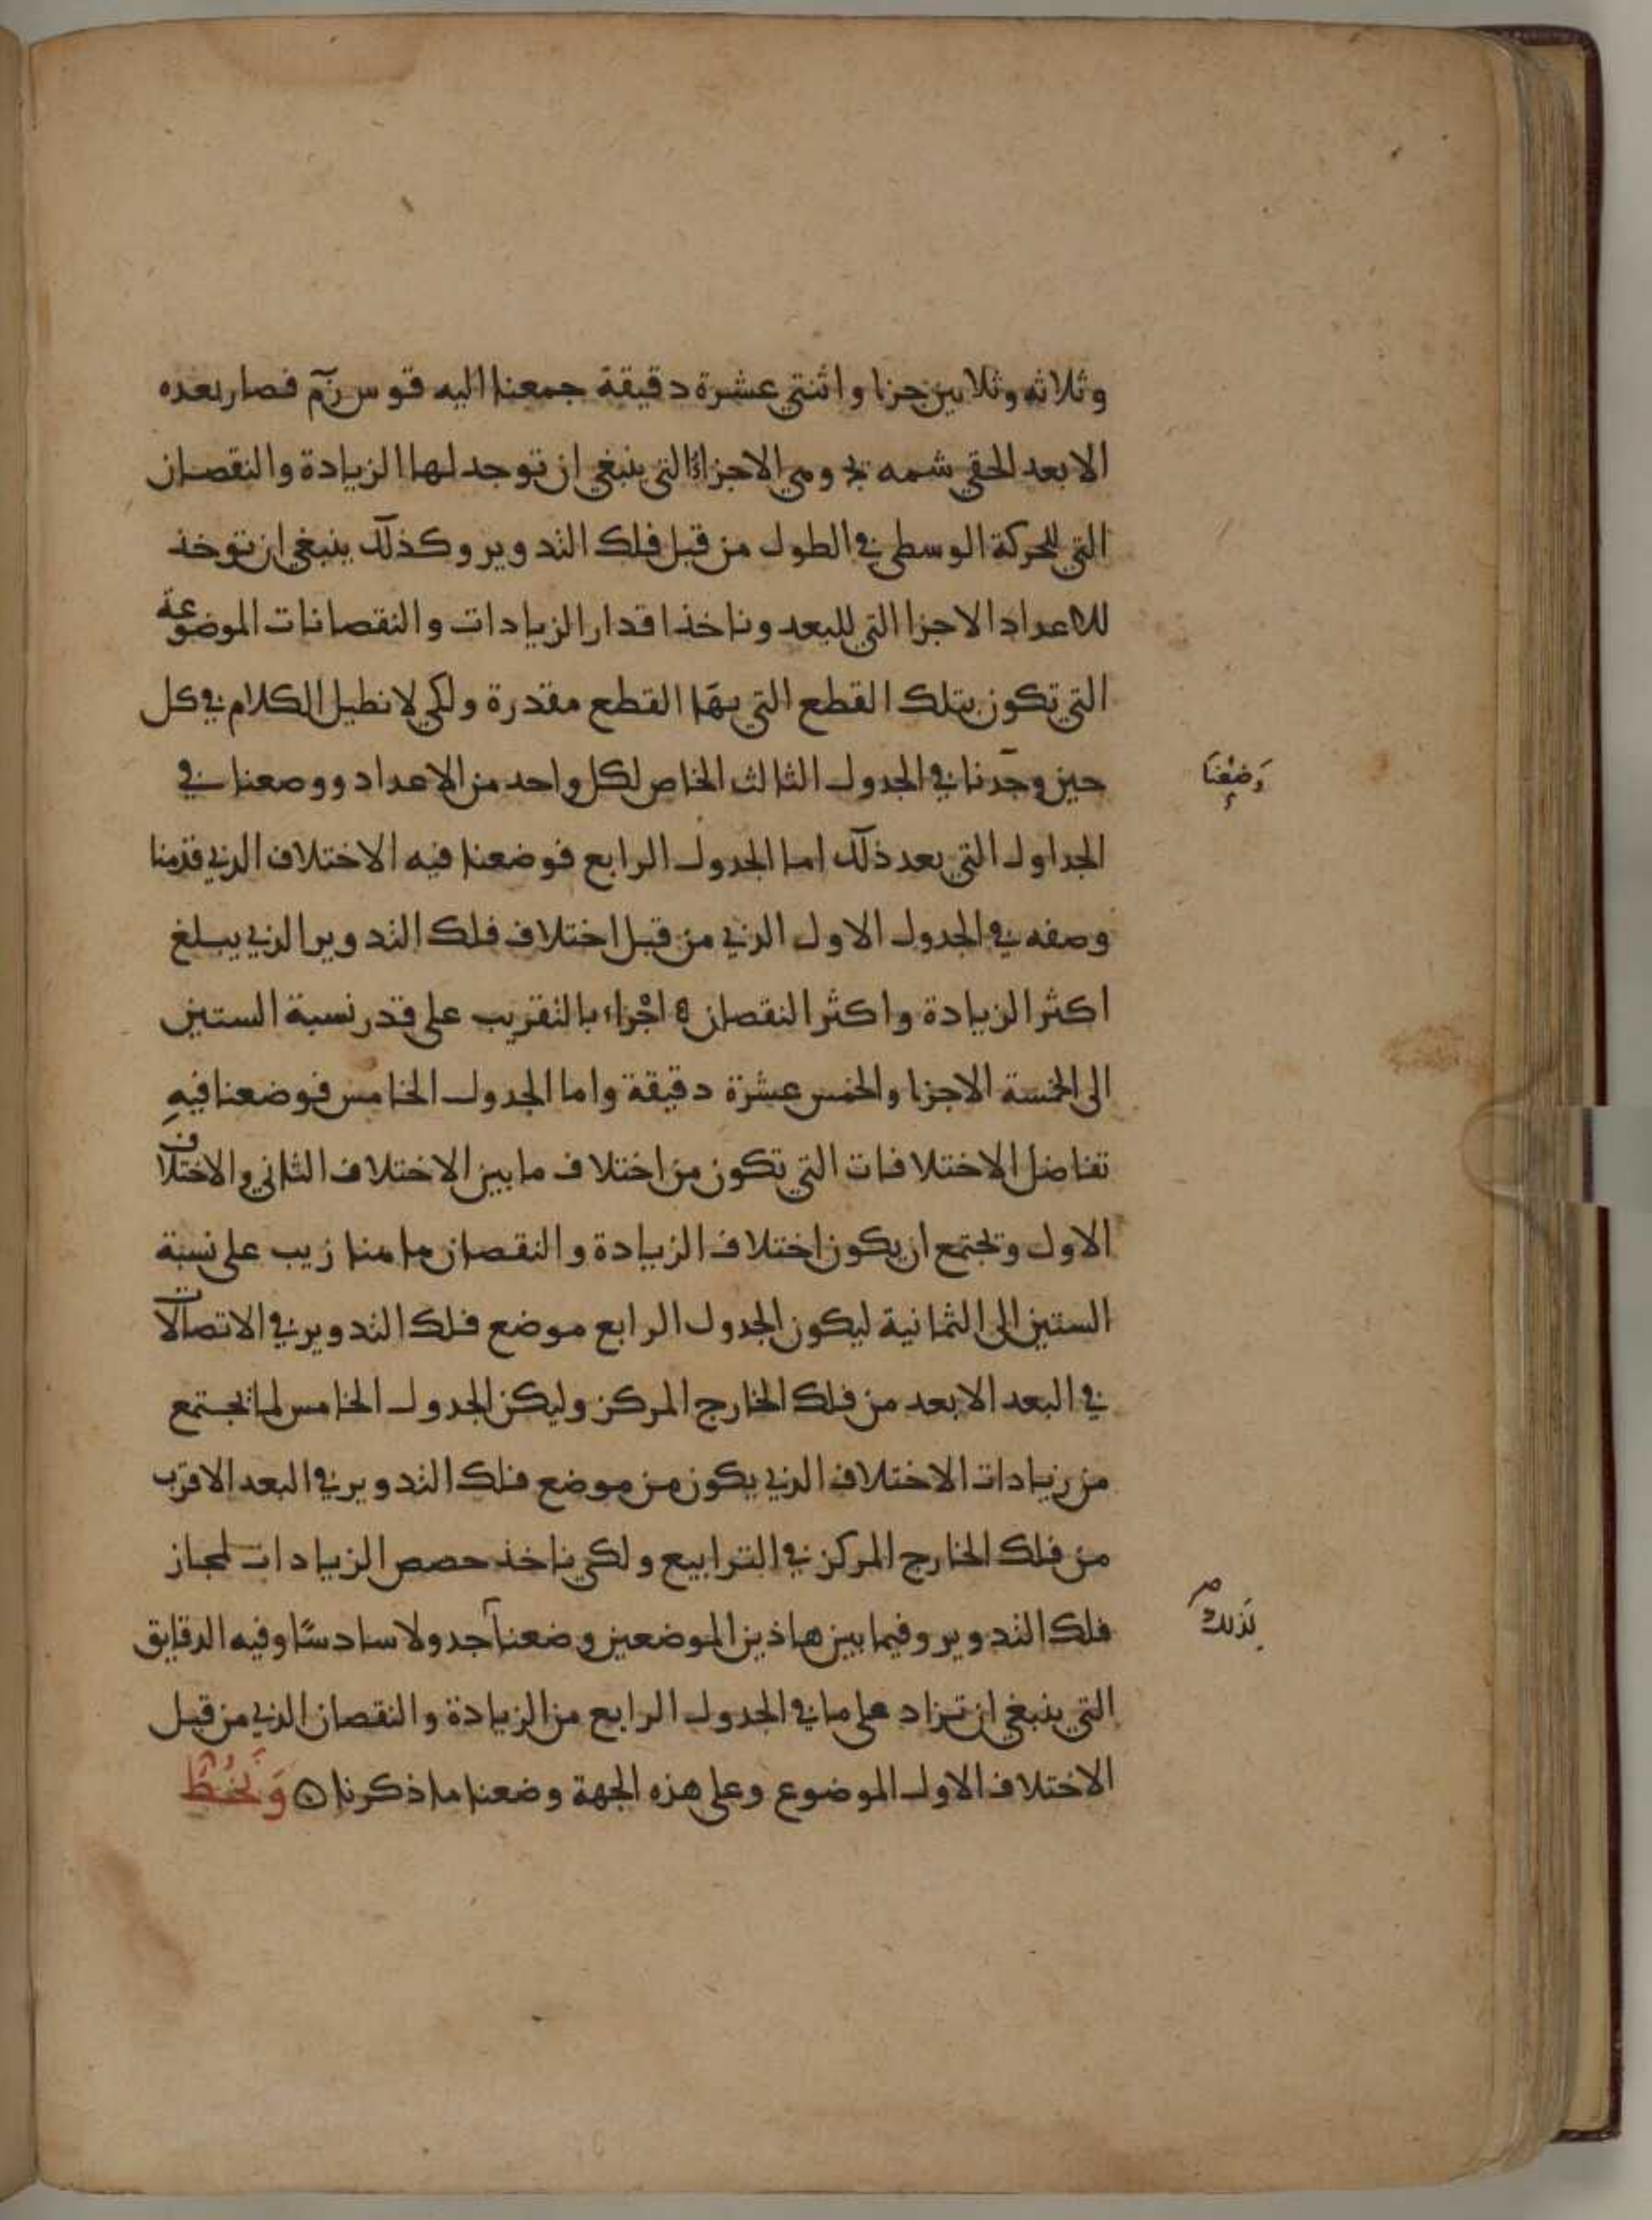 وثلاثه وثلاثين جزا واثنتي عشرة دقيقة جمعنا اليه قوس زم فصار بعده
الابعد الحقي شمه يح ومي الاجزاء التي ينبغي ان توجد لها الزيادة والنقصان
التي للحركة الوسطى في الطول من قبل فلك التدوير وكذلك ينبغي ان توخذ
للاعداد الاجزا التي للبعد وناخذ اقدار الزيادات والنقصانات الموضوعة
التي تكون بتلك القطع التي بها القطع مقدرة ولكي لا نطيل الكلام في كل
حين وجدنا في الجدول الثالث الخاص لكل واحد من الاعداد ووصعنا في
وَضَعْنَا
الجداول التي بعد ذلك اما الجدول الرابع فوضعنا فيه الاختلاف الذي قدمنا
وصفه في الجدول الاول الذي من قبل اختلاف فلك التدوير الذي يبلغ
اكثر الزيادة واكثر النقصان ه اجزاء بالتقريب على قدر نسبة الستين
الى الخمسة الاجزا والخمس عشرة دقيقة واما الجدول الخامس فوضعنا فيهِ
تفاضل الاختلافات التي تكون من اختلاف ما بين الاختلاف الثاني والاختلاف
الاول وتجتمع ان يكون اختلاف الزيادة والنقصان على نسبة
الستين الى الثمانية ليكون الجدول الرابع موضع فلك التدوير في الاتصالات
في البعد الابعد من فلك الخارج المركز وليكن الجدول الخامس لما يجتمع
من زيادات الاختلاف الذي يكون من موضع فلك التدوير في البعد الاقرب
من فلك الخارج المركز في الترابيع ولكي ناخذ حصص الزيادات لمجاز
فلك التدوير وفيما بين هاذين الموضعين وضعنا جدولا سادسًا وفيه الدقايق
بذلك
التي ينبغي ان تزاد على ما في الجدول الرابع من الزيادة والنقصان الذي من قبل
الاختلاف الاول الموضوع وعلى هذه الجهة وضعنا ما ذكرنا ۞ وَنَخُطُّ